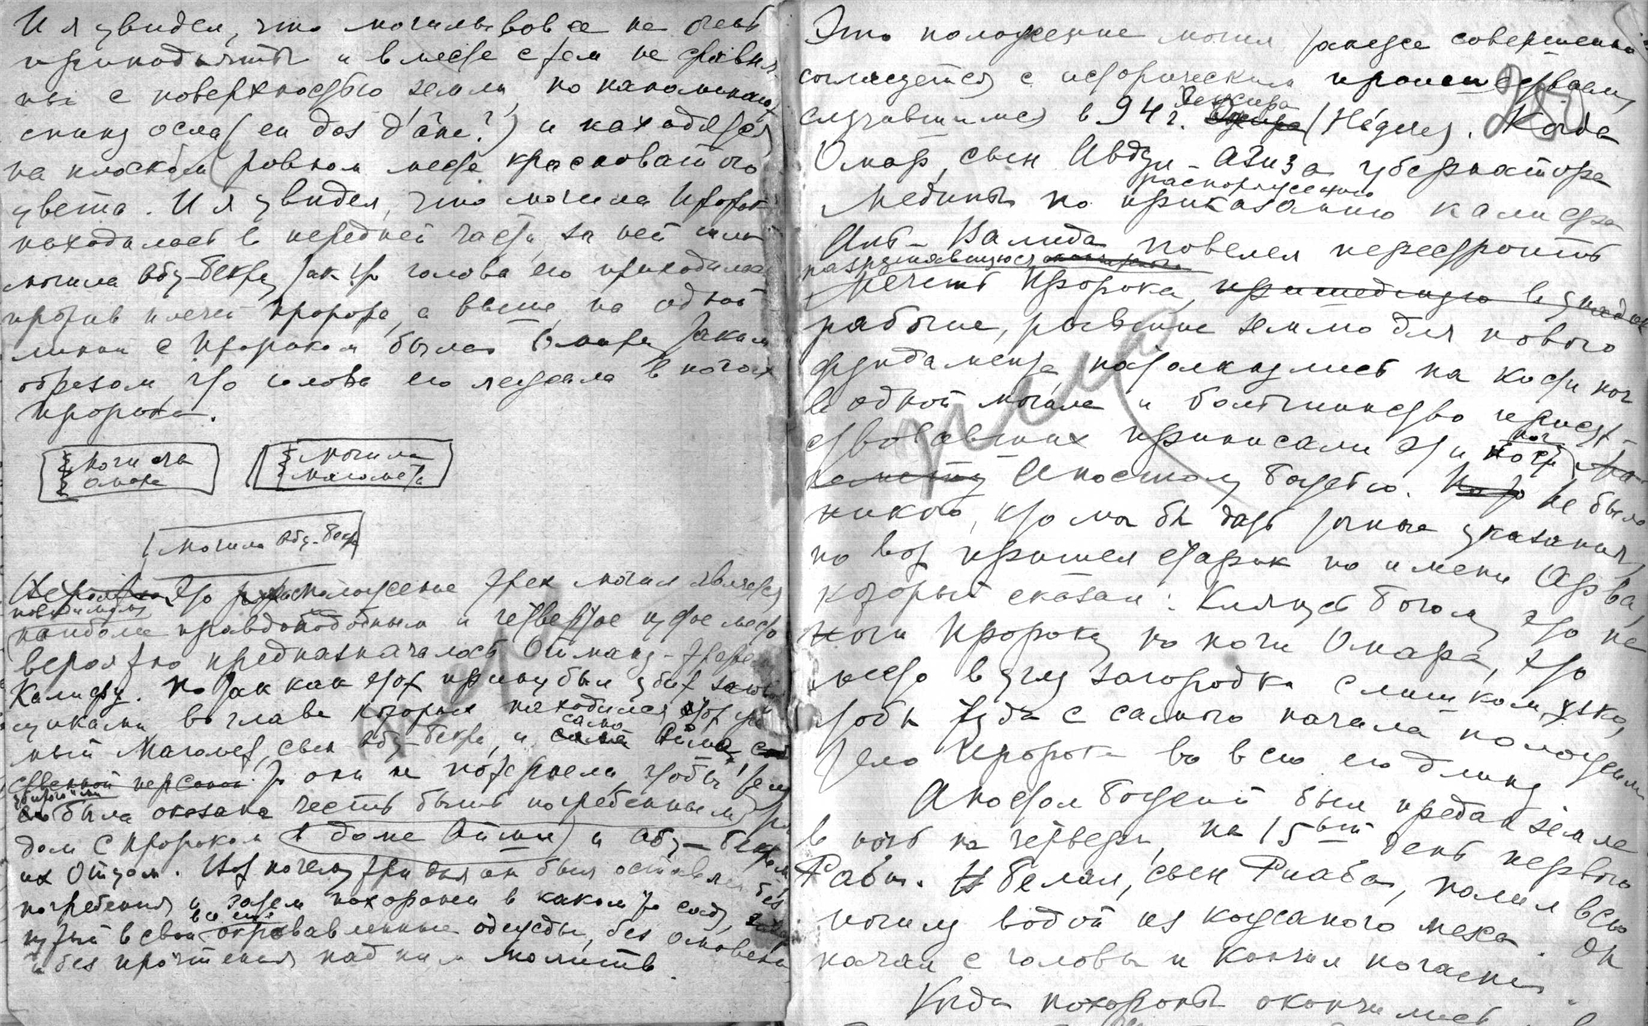 И я увидел, что могилы вовсе не очень
приподняты и вместе с тем не сравне
ны с поверхностью земли, но напоминают
спину осла (en dos d'âne?) и находятся
на плоском ровном месте красноватого
цвета. И я увидел, что могила Пророка
находилась в передней части, за ней шла
могила Абу-Бекра, так что голова его приходилась
против плеч Пророка, а выше, на одной
линии с Пророком была Омара таким
образом, что голова его лежала в ногах
Пророка.
могила Омара
могила Магомета
могила Абу-Бекра
Это расположение трех могил является
повидимому
наиболее правдоподобным и четвертое пустое место
вероятно предназначалось Отману - третьему
Калифу. Но так как этот принц был убит
щиками во главе которых находился
ный Магомет, сын Абу-Бекра, и сама
персона то они не потерпели, чтобы
была оказана честь быть погребенным ря
дом с Пророком в доме Айши и Абу-Бекром
их Отцом. Вот почему три дня он был оставлен без
погребения и затем похоронен в каком то саду,
в свои окровавленные одежды, без омовения
и без прочтения над ним молитв.
Это положение могил также совершенно
согласуется с историческим происшествием,
280
случившимся в 94 г. (Hégire). Когда
Омар, сын Абдул-Азиза губернатора
распоряжению
Медины по приказанию калифа
Аль-Валида повелел перестроить
разрушавшуюся
мечеть Пророка, пришедшую в упадок
рабочие, роввшие землю для нового
фундамента, натолкнулись на кости ног
в одной могиле и большинство присут-
ствовавших приписали эти кости
Апостолу божьему. Не было
никого, кто мог бы дать точные указания,
но вот пришел старик по имени Арва,
который сказал: Клянусь богом, это не
ноги Пророка, но ноги Омара, что
место в углу загородки слишком узко,
чтобы туда с самого начала положили
тело Пророка во всю его длину
Апостол божий был предан земле
в ночь на четверг, на 15ый день первого
Раби. Белал, сын Риаба, полил всю
могилу водой из кожаного меха. Он
начал с головы и кончил ногами.
Когда похороны окончились